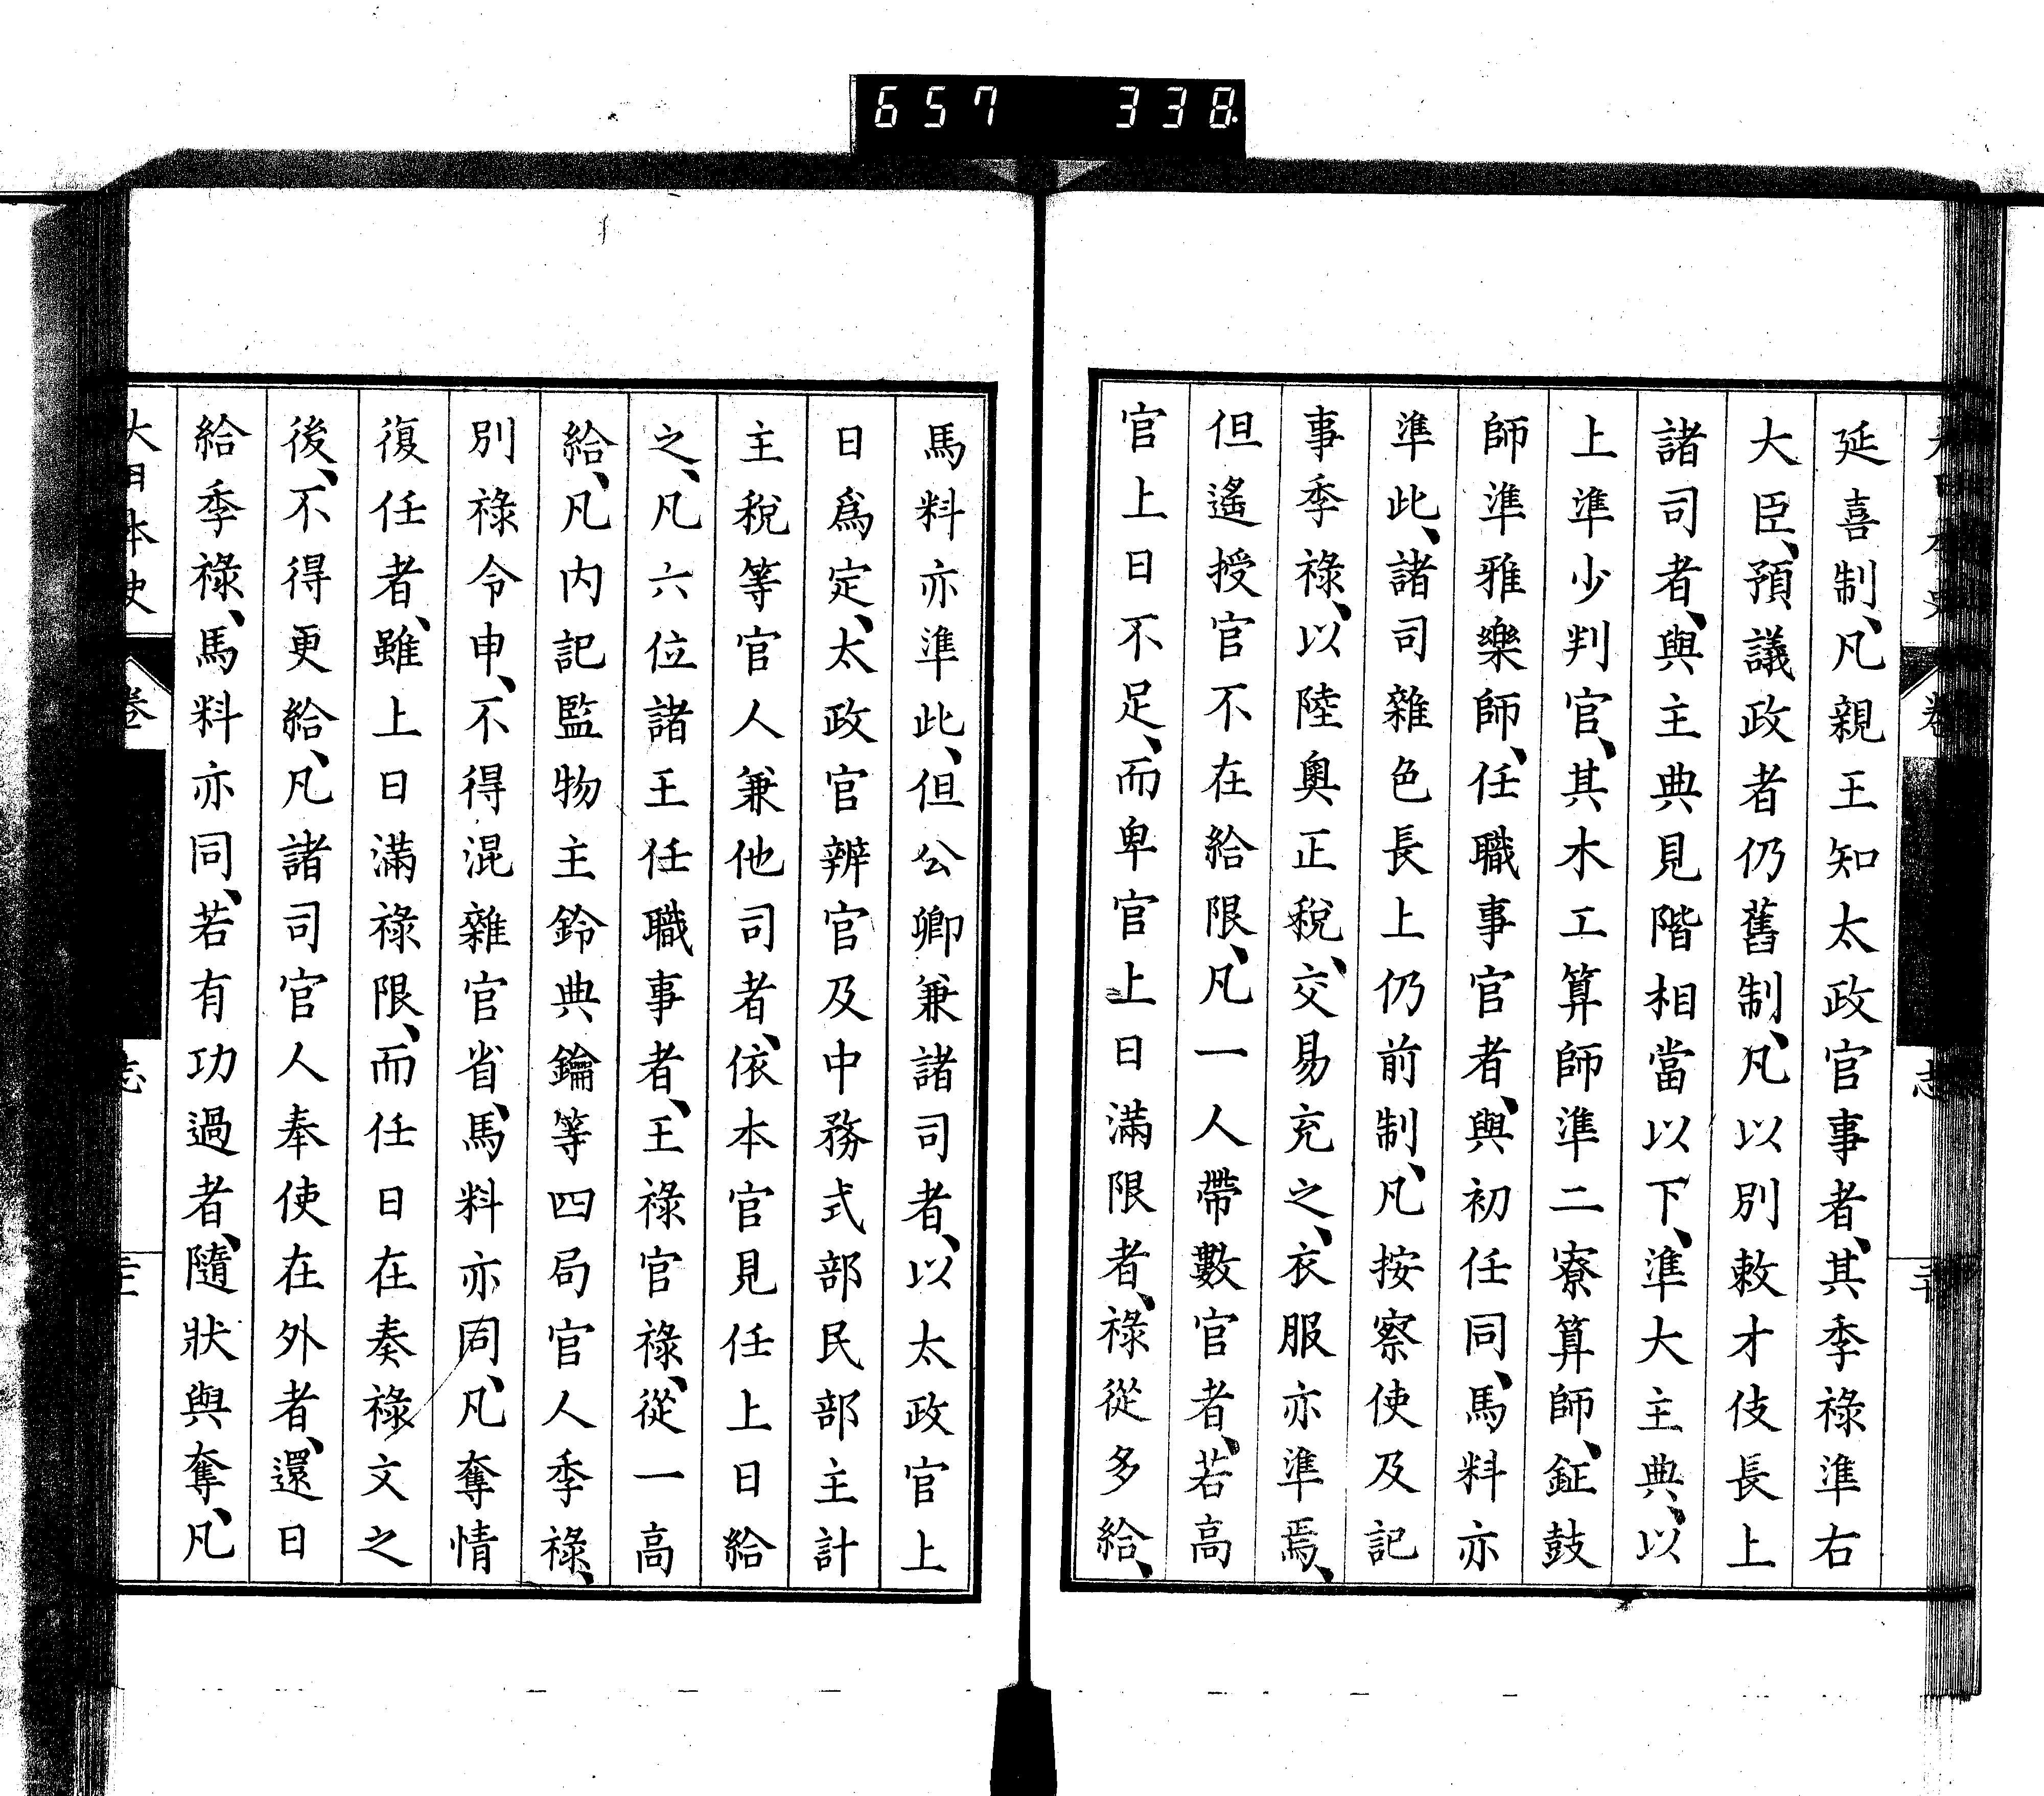 657 338
延喜制、凡親王知太政官事者、其季祿準右
大臣、預議政者仍舊制、凡以別敕才伎長上
諸司者、與主典見階相當以下、準大主典、以
上準少判官、其木工算師準二寮算師、鉦鼓
師準雅樂師、任職事官者、與初任同、馬料亦
準此、諸司雜色長上仍前制、凡按察使及記
事季祿、以陸奧正稅、交易充之、衣服亦準焉、
但遙授官不在給限、凡一人帶數官者、若高
官上日不足、而卑官上日滿限者、祿從多給、
馬料亦準此、但公卿兼諸司者、以太政官上
日爲定、太政官辨官及中務式部民部主計
主稅等官人兼他司者、依本官見任上日給
之、凡六位諸王任職事者、王祿官祿、從一高
給、凡内記監物主鈴典鑰等四局官人季祿、
別祿令申、不得混雜官省、馬料亦同、凡奪情
復任者、雖上日滿祿限、而任日在奏祿文之
後、不得更給、凡諸司官人奉使在外者、還日
給季祿、馬料亦同、若有功過者、隨狀與奪、凡
大日本史 卷 志